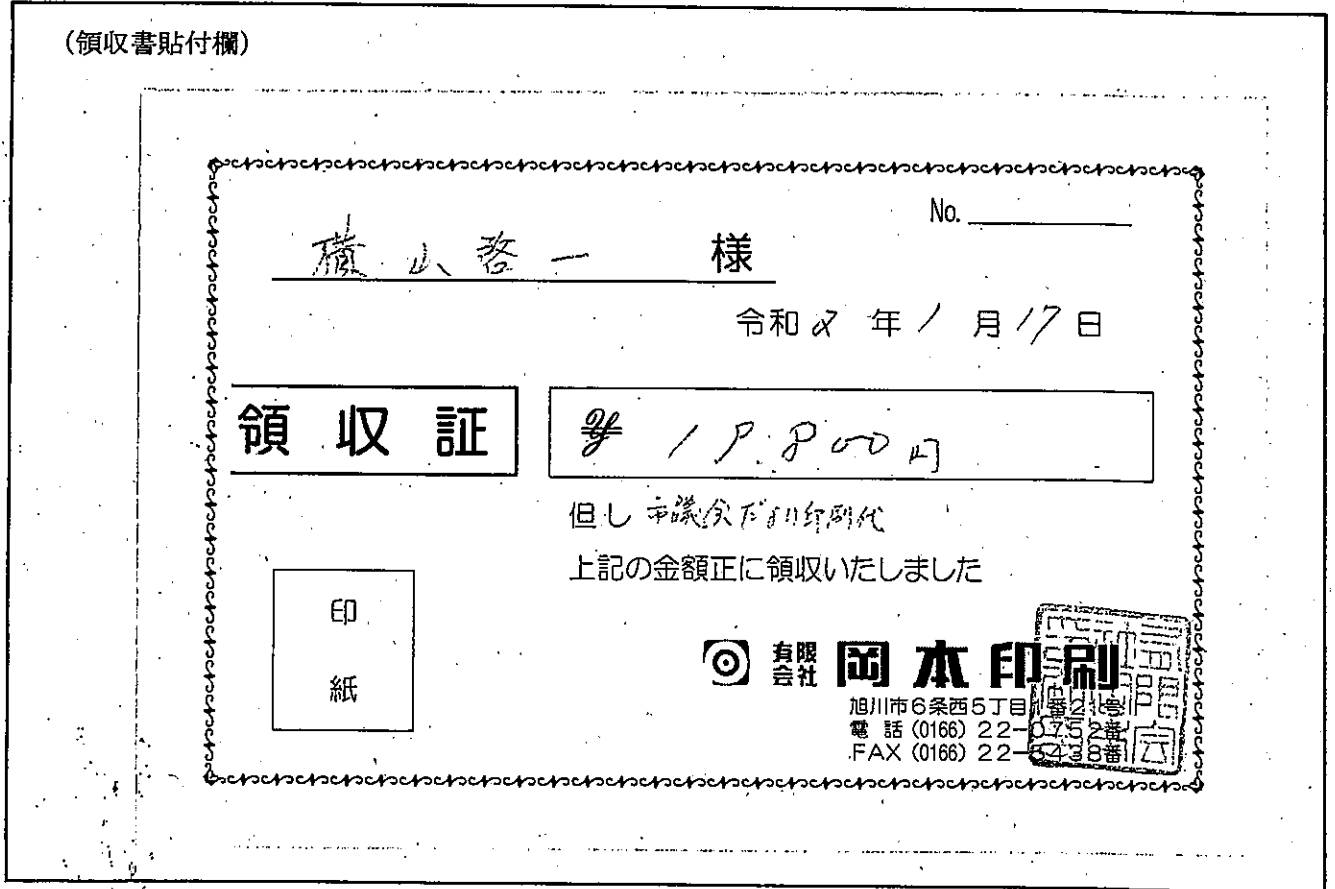 (領収書貼付欄)
No.
横山啓一 様
令和2年1月17日
領収証
¥19.800円
但し 市議会だより印刷代
上記の金額正に領収いたしました
印
紙
有限会社 岡本印刷
旭川市6条西5丁目
電 話 (0166) 22-0752番
FAX (0166) 22-5438番